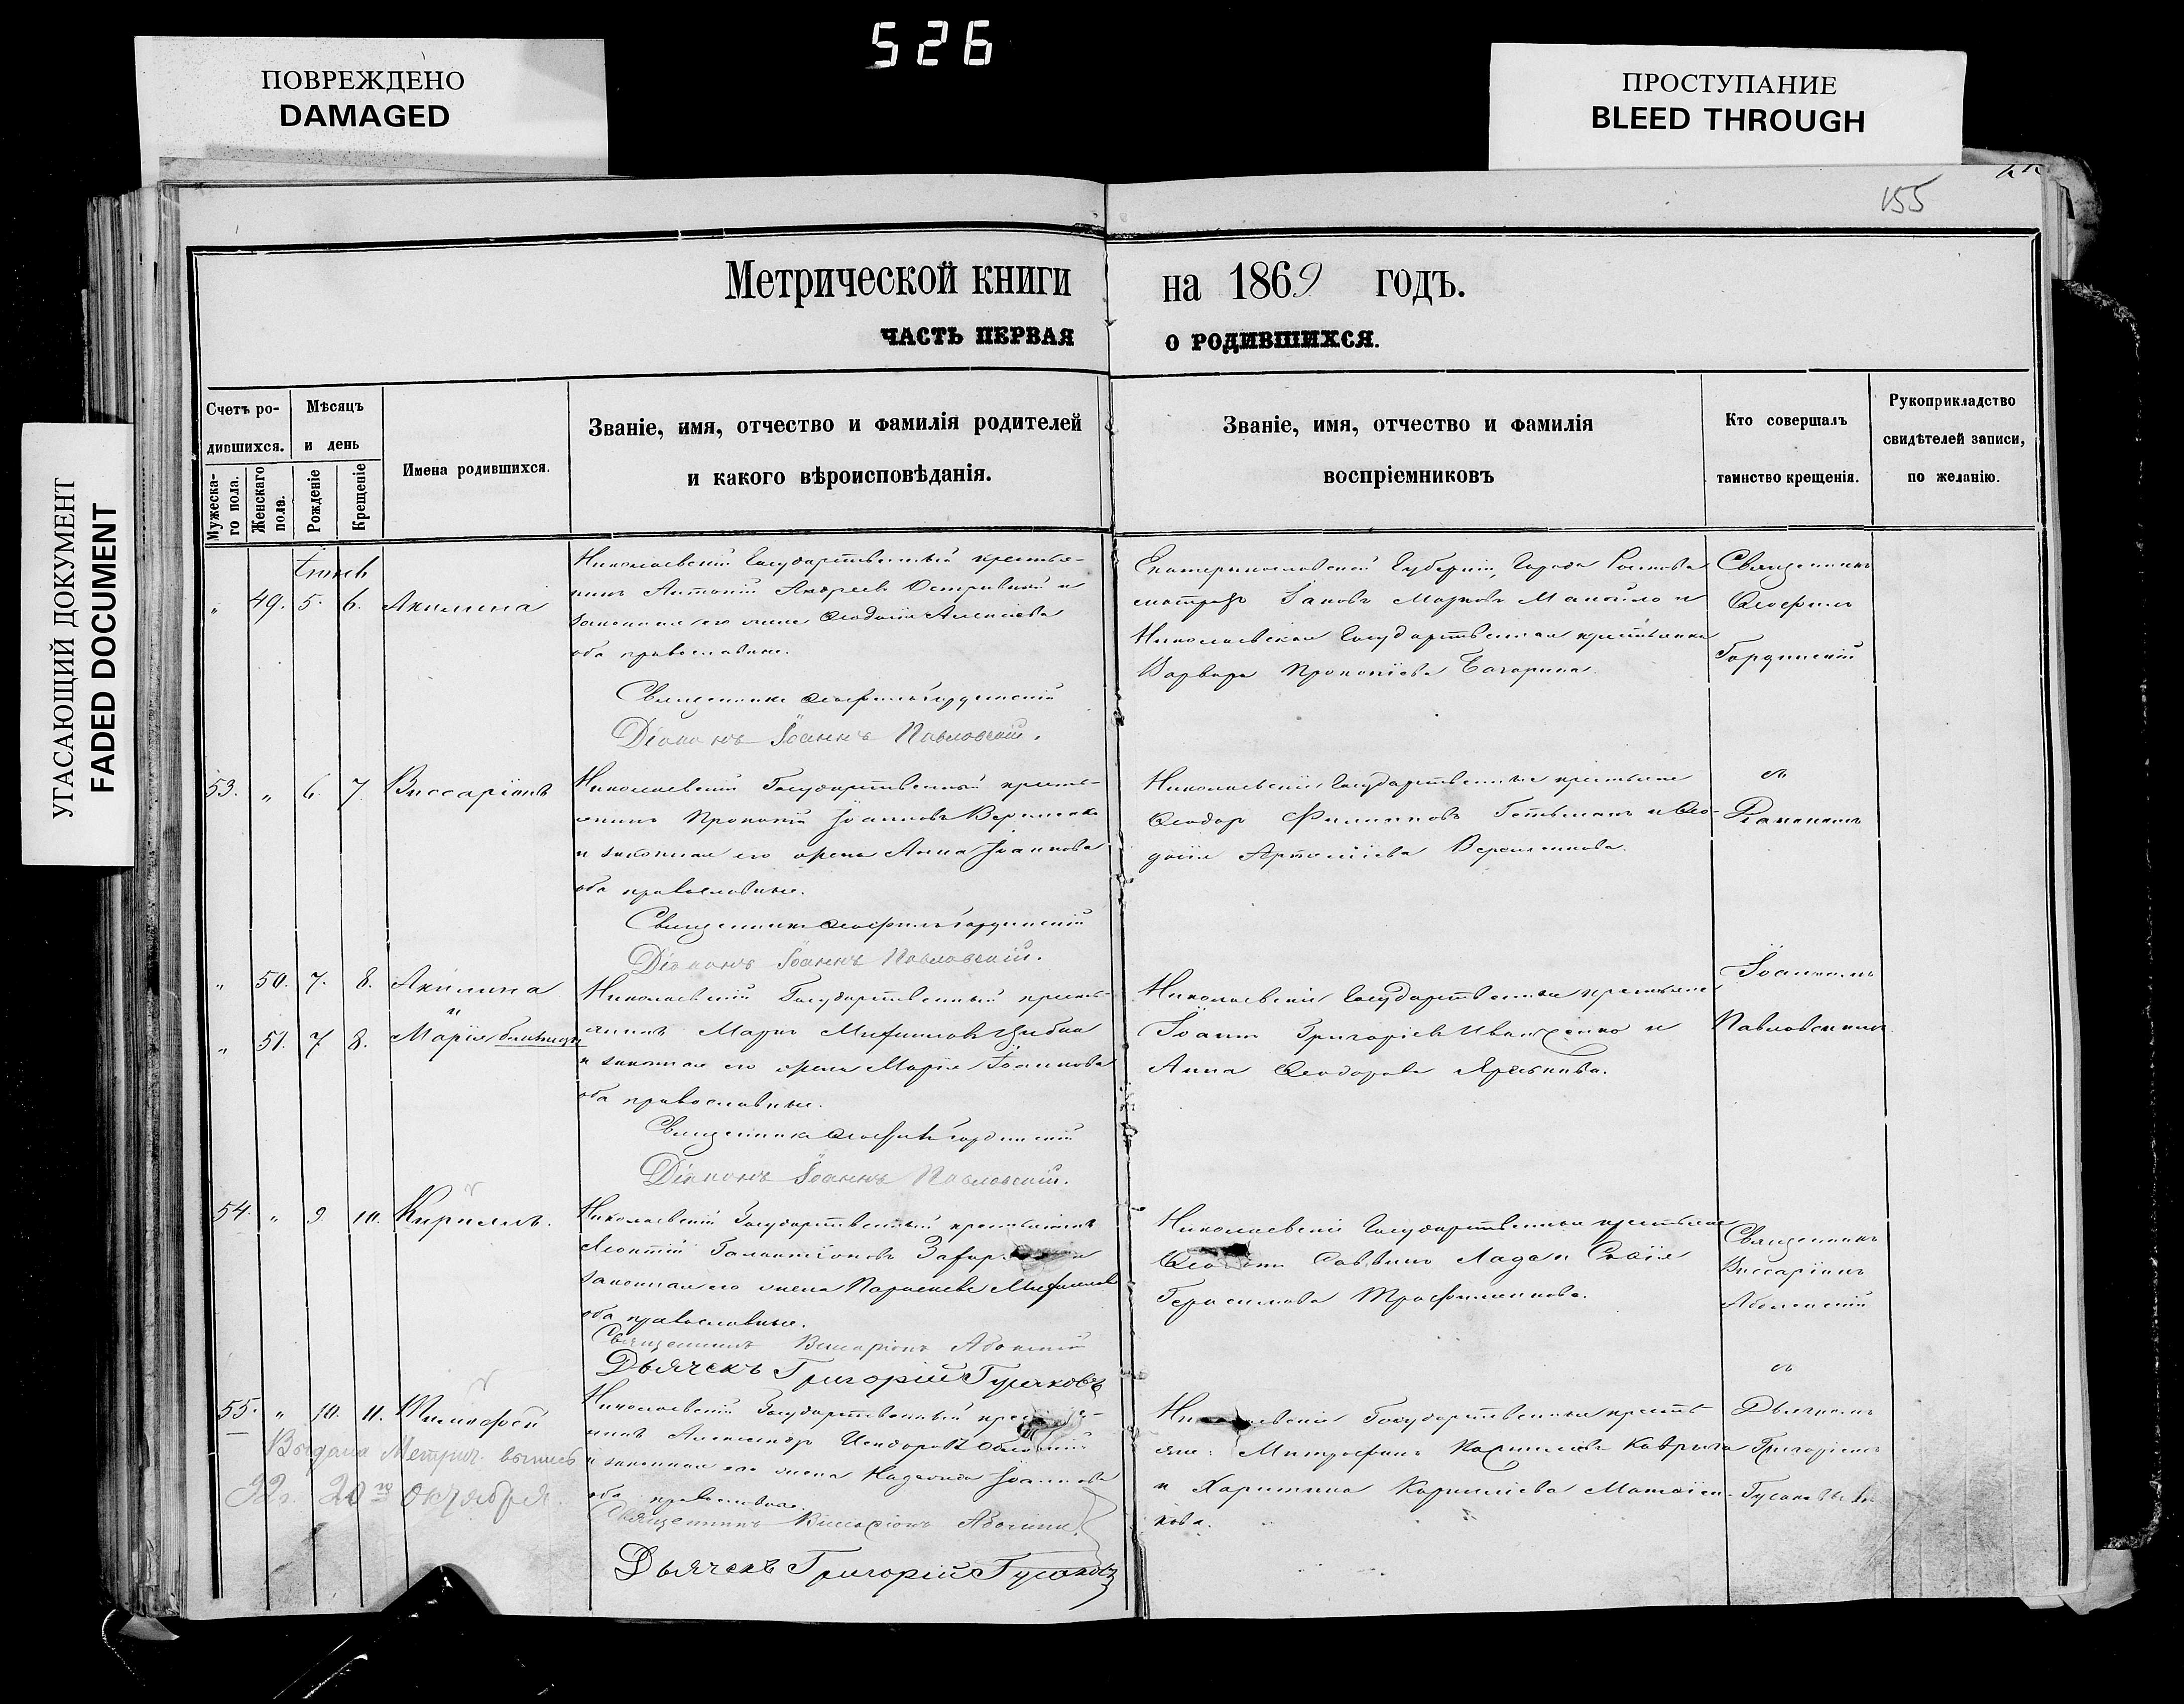 526
ПОВРЕЖДЕНО
DAMAGED
ПРОСТУПАНИЕ
BLEED THROUGH
УГАСАЮЩИЙ ДОКУМЕНТ
FADED DOCUMENT
155
Метрической книги на 1869 годъ.
ЧАСТЬ ПЕРВАЯ О РОДИВШИХСЯ.
Счетъ ро-
дившихся.
Мужеска-
го пола.
Женскаго
пола.
Мѣсяцъ
и день
Рожденіе
Крещеніе
Имена родившихся.
Званіе, имя, отчество и фамилія родителей
и какого вѣроисповѣданія.
Званіе, имя, отчество и фамилія
воспріемниковъ
Кто совершалъ
таинство крещенія.
Рукоприкладство
свидѣтелей записи,
по желанію.
„ 49. 5. 6. Акилина
Николаевскій Государственный крестья-
нинъ Антоній Андреевъ и
законная его жена Ѳеодосія Алексіева
оба православные.
Священникъ Ѳеофилъ Гординскій
Діаконъ Іоаннъ Павловскій.
Екатеринославской Губерніи, Города Ростова
Іаковъ Марковъ Манойло и
Николаевская Государственная крестьянка
Варвара Прокопіева
Священникъ
Ѳеофилъ
Гординскій
53. „ 6. 7. Виссаріонъ
Николаевскій Государственный кресть-
янинъ Прокопій Іоанновъ
и законная его жена Анна Іоаннова
оба православные.
Священникъ Ѳеофилъ Гординскій
Діаконъ Іоаннъ Павловскій.
Николаевскіе Государственные крестьяне
Ѳеодоръ Филипповъ Гетьманъ и Ѳео-
досія Артеміева
съ
Діакономъ
„ 50. 7. 8. Акилина
и
„ 51. 7. 8. Марія близнецы
Николаевскій Государственный кресть-
янинъ Маркъ Михаиловъ Цыбка
и законная его жена Марія Іоаннова
оба православные.
Священникъ Ѳеофилъ Гординскій
Діаконъ Іоаннъ Павловскій.
Николаевскіе Государственные крестьяне
Іоаннъ Григоріевъ Иващенко и
Анна Ѳеодорова
Іоанномъ
Павловскимъ.
54. „ 9. 10. Кириллъ.
Николаевскій Государственный крестьянинъ
Леонтій Галактіоновъ и
законная его жена Параскева Михаилова
оба православные.
Священникъ Виссаріонъ
Дьячекъ Григорій Гусаковъ
Николаевскіе Государственные крестьяне
Саввинъ Лада и
Герасимова Трофименкова.
Священникъ
Виссаріонъ
55. „ 10. 11.
Выдана Метрич. выпись
92 г. 20го октября.
Николаевскій Государственный
Александръ Исидоровъ
и законная его жена Надежда Іоаннова
оба православные.
Священникъ Виссаріонъ
Дьячекъ Григорій Гусаковъ
Государственные кресть-
яне: Митрофанъ Корниліевъ Коврыга
и Харитина Корниліева Матвіен-
кова.
съ
Дьячкомъ
Григоріемъ
Гусаковымъ